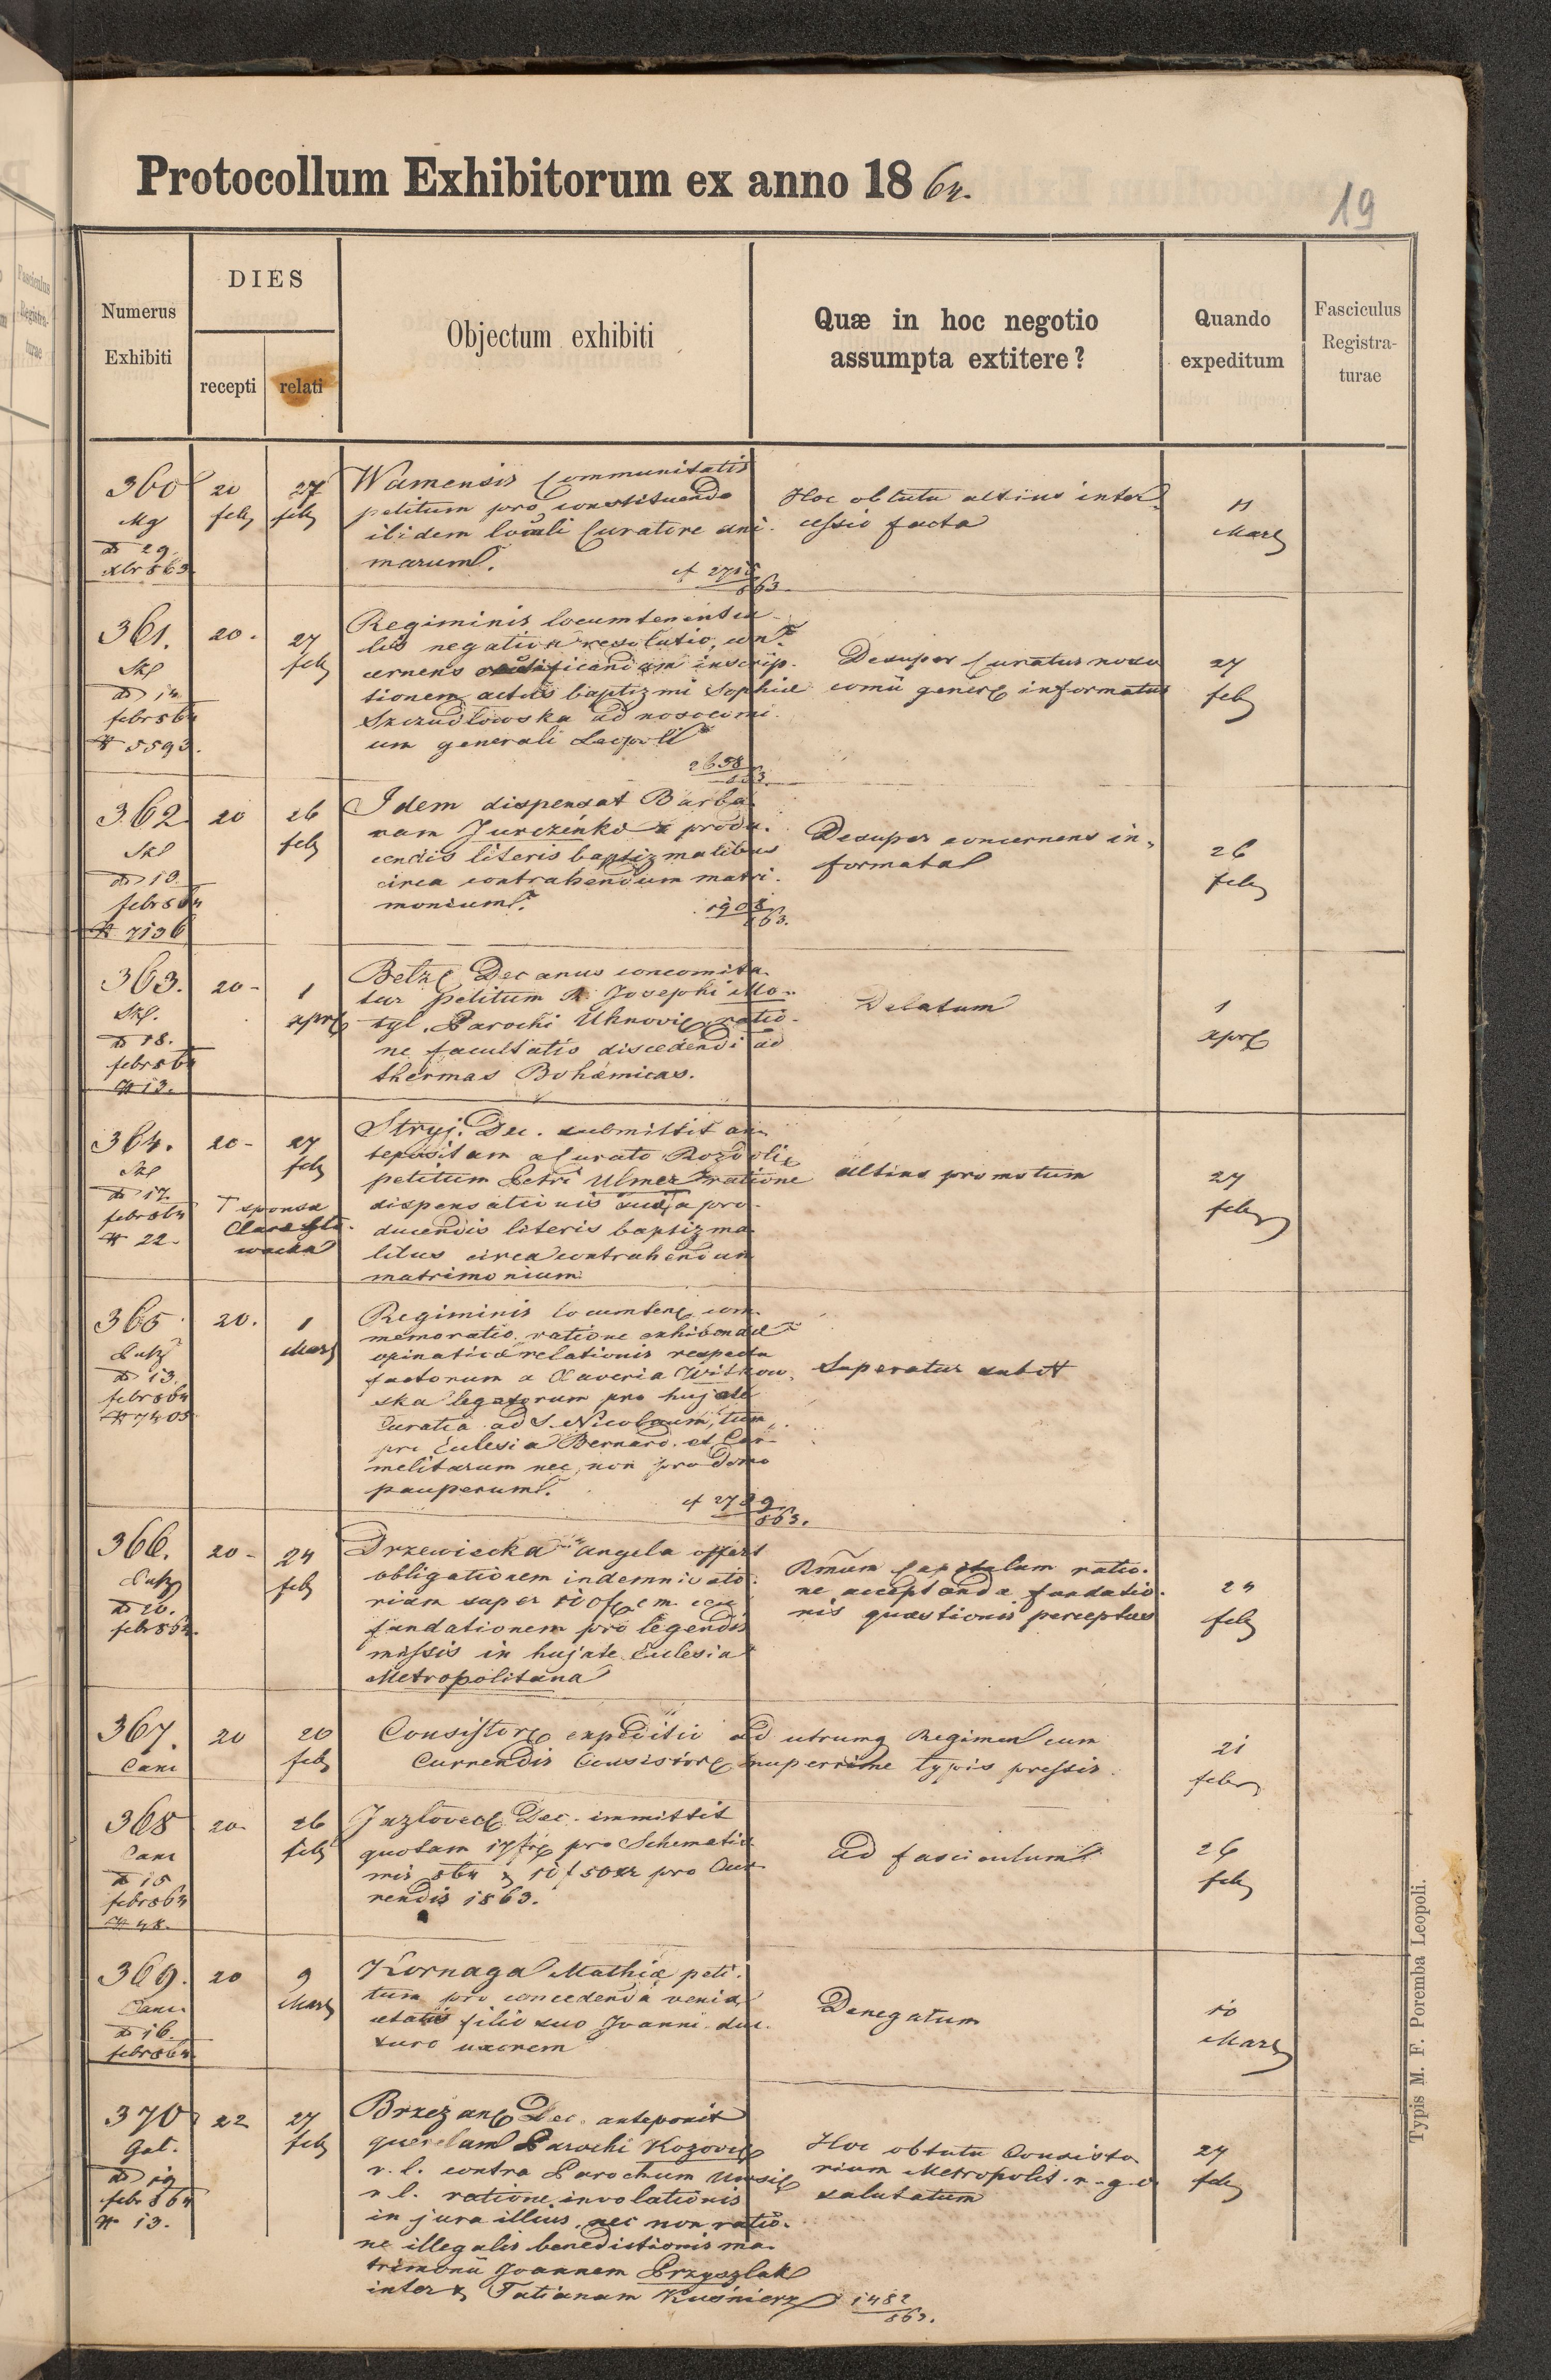 Protocollum Exhibitorum ex anno 1864.
19
Numerus Exhibiti
DIES
recepti
relati
Objectum exhibiti
Quæ in hoc negotio assumpta extitere?
Quando expeditum
Fasciculus Registra-turae
360
Mg
20 feb
27 feb
Wamensis Communitatis
petitum pro constituendo
ibidem locali Curatore ani-
marum.
863.
Hoc obtutu altius inter-
cessio facta
11
Mart
361.
Skl
febr 864
# 5593.
20.
27
feb
Regiminis locumtenentia-
lis negativa resolutio, con-
cernens inscrip-
tionem actus baptizmi Sophiæ
Szczudłowska ad nosocomi-
um generali Leopoli
2658
863.
Desuper Curatus noso
comii gener informatus
27
feb
362
Skl
febr 864
# 7136
20
26
feb
Idem dispensat Barba-
ram Jurczenko a produ-
cendis literis baptizmalibus
circa contrahendum matri-
monium.
1908
863.
Desuper concernens in-
formata
26
feb
363.
Skl.
D 18.
febr 864
# 13.
20-
1
apr
Belz Decanus concomita-
tur petitum R. Josephi Mo-
tyl, Parochi Uhnovi ratio-
ne facultatis discedendi ad
thermas Bohemicas.
Delatum
1
apr
364.
Skl
D 17.
febr 864
# 22.
20-
27
feb
T sponsa
Stryj. Dec. submittit an-
tepositam a Curato Rozdoli
petitum Petri Ulmer ratione
dispensationis a pro-
ducendis literis baptizma-
libus circa contrahendum
matrimonium
altius promotum
27
feb
365
D 13.
febr 864
# 7405
20.
1
Mart
Regiminis locumten com-
memoratio ratione exhibendæ
opinativæ relationis respectu
factorum a Xaveria Witkow-
ska legatorum pro hujate
Curatia ad S. Nicolaum, tum
pro Ecclesia Bernard. et Car-
melitarum nec non pro domo
pauperum.
cf 2789
863.
Superatur sub #
366.
D 20.
febr 864.
20-
24
feb
Drzewiecka Angela offert
obligationem indemnisato-
riam super
fundationem pro legendis
missis in hujate Ecclesia
Metropolitana
Rmum Capitulum ratio-
ne acceptandæ fundatio-
nis quæstionis perceptus
24
feb
367.
Canc
20
20
feb
Consistor expeditio ad utrumq Regimen cum
Currendis Consistor nuperrime typis pressis.
21
febr
368
Canc
D 15
febr 864
# 48.
20.
26
feb
Jazlovec Dec. immittit
quotam 17 pro Schematis-
mis 864 & 10 f 50 xr pro Cur-
rendis 1863.
Ad fasciculum
26
feb
369.
Canc.
D 16.
febr 864
20
9
Mart
Kornaga Mathiæ peti-
tum pro concedenda venia
ætatis filio suo Joanni duc-
turo uxorem
Denegatum
10
Mart
370
Gal.
D 19
febr 864
# 13.
22
27
feb
Brzezan Dec. anteponit
querelam Parochi Kozovi
r. l. contra Parochum
r. l. ratione involationis
in jura illius, nec non ratio-
ne illegalis benedictionis ma-
trimonii Joannem Przyszlak
inter & Tatianam Kuśnierz
1482
863.
Hoc obtutu Consisto
rium Metropolit. r. g. c.
salutatum
27
feb
Typis M. F. Poremba Leopoli.